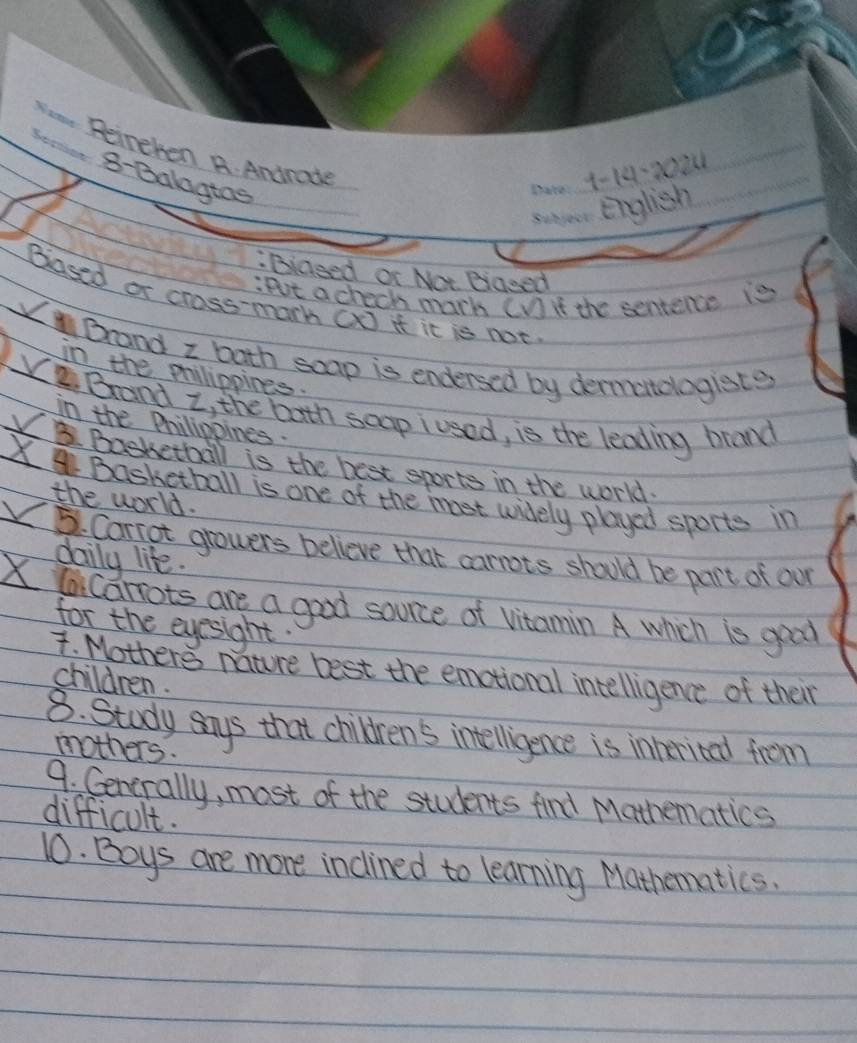 Name: Reineken R. Andrade
Section: 8-Balagtas
Date: 1-14-2024
Subject: English
Activity 1 : Biased or Not Biased
Directions : Put a check mark (✓) if the sentence is
Biased or cross-mark (X) if it is not.
✓ 1. Brand Z bath soap is endersed by dermatologists
in the Philippines.
✓ 2. Brand Z, the bath soap i used, is the leading brand
in the Philippines.
✓ 3. Basketball is the best sports in the world.
X 4. Basketball is one of the most widely played sports in
the world.
✓ 5. Carrot growers believe that carrots should be part of our
daily life.
X 6. Carrots are a good source of Vitamin A which is good
for the eyesight.
7. Mothers nature best the emotional intelligence of their
children.
8. Study says that children's intelligence is inherited from
mothers.
9. Generally, most of the students find Mathematics
difficult.
10. Boys are more inclined to learning Mathematics.